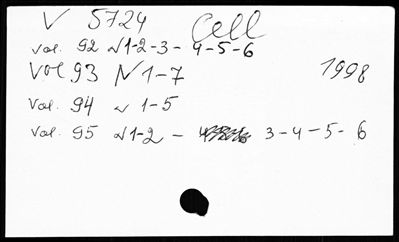 V 5724 Cell
Vol. 92 N 1-2-3- 4-5-6
Vol 93 N 1-7 1998
Vol. 94 N 1-5
Vol. 95 N 1-2 - 3-4-5-6